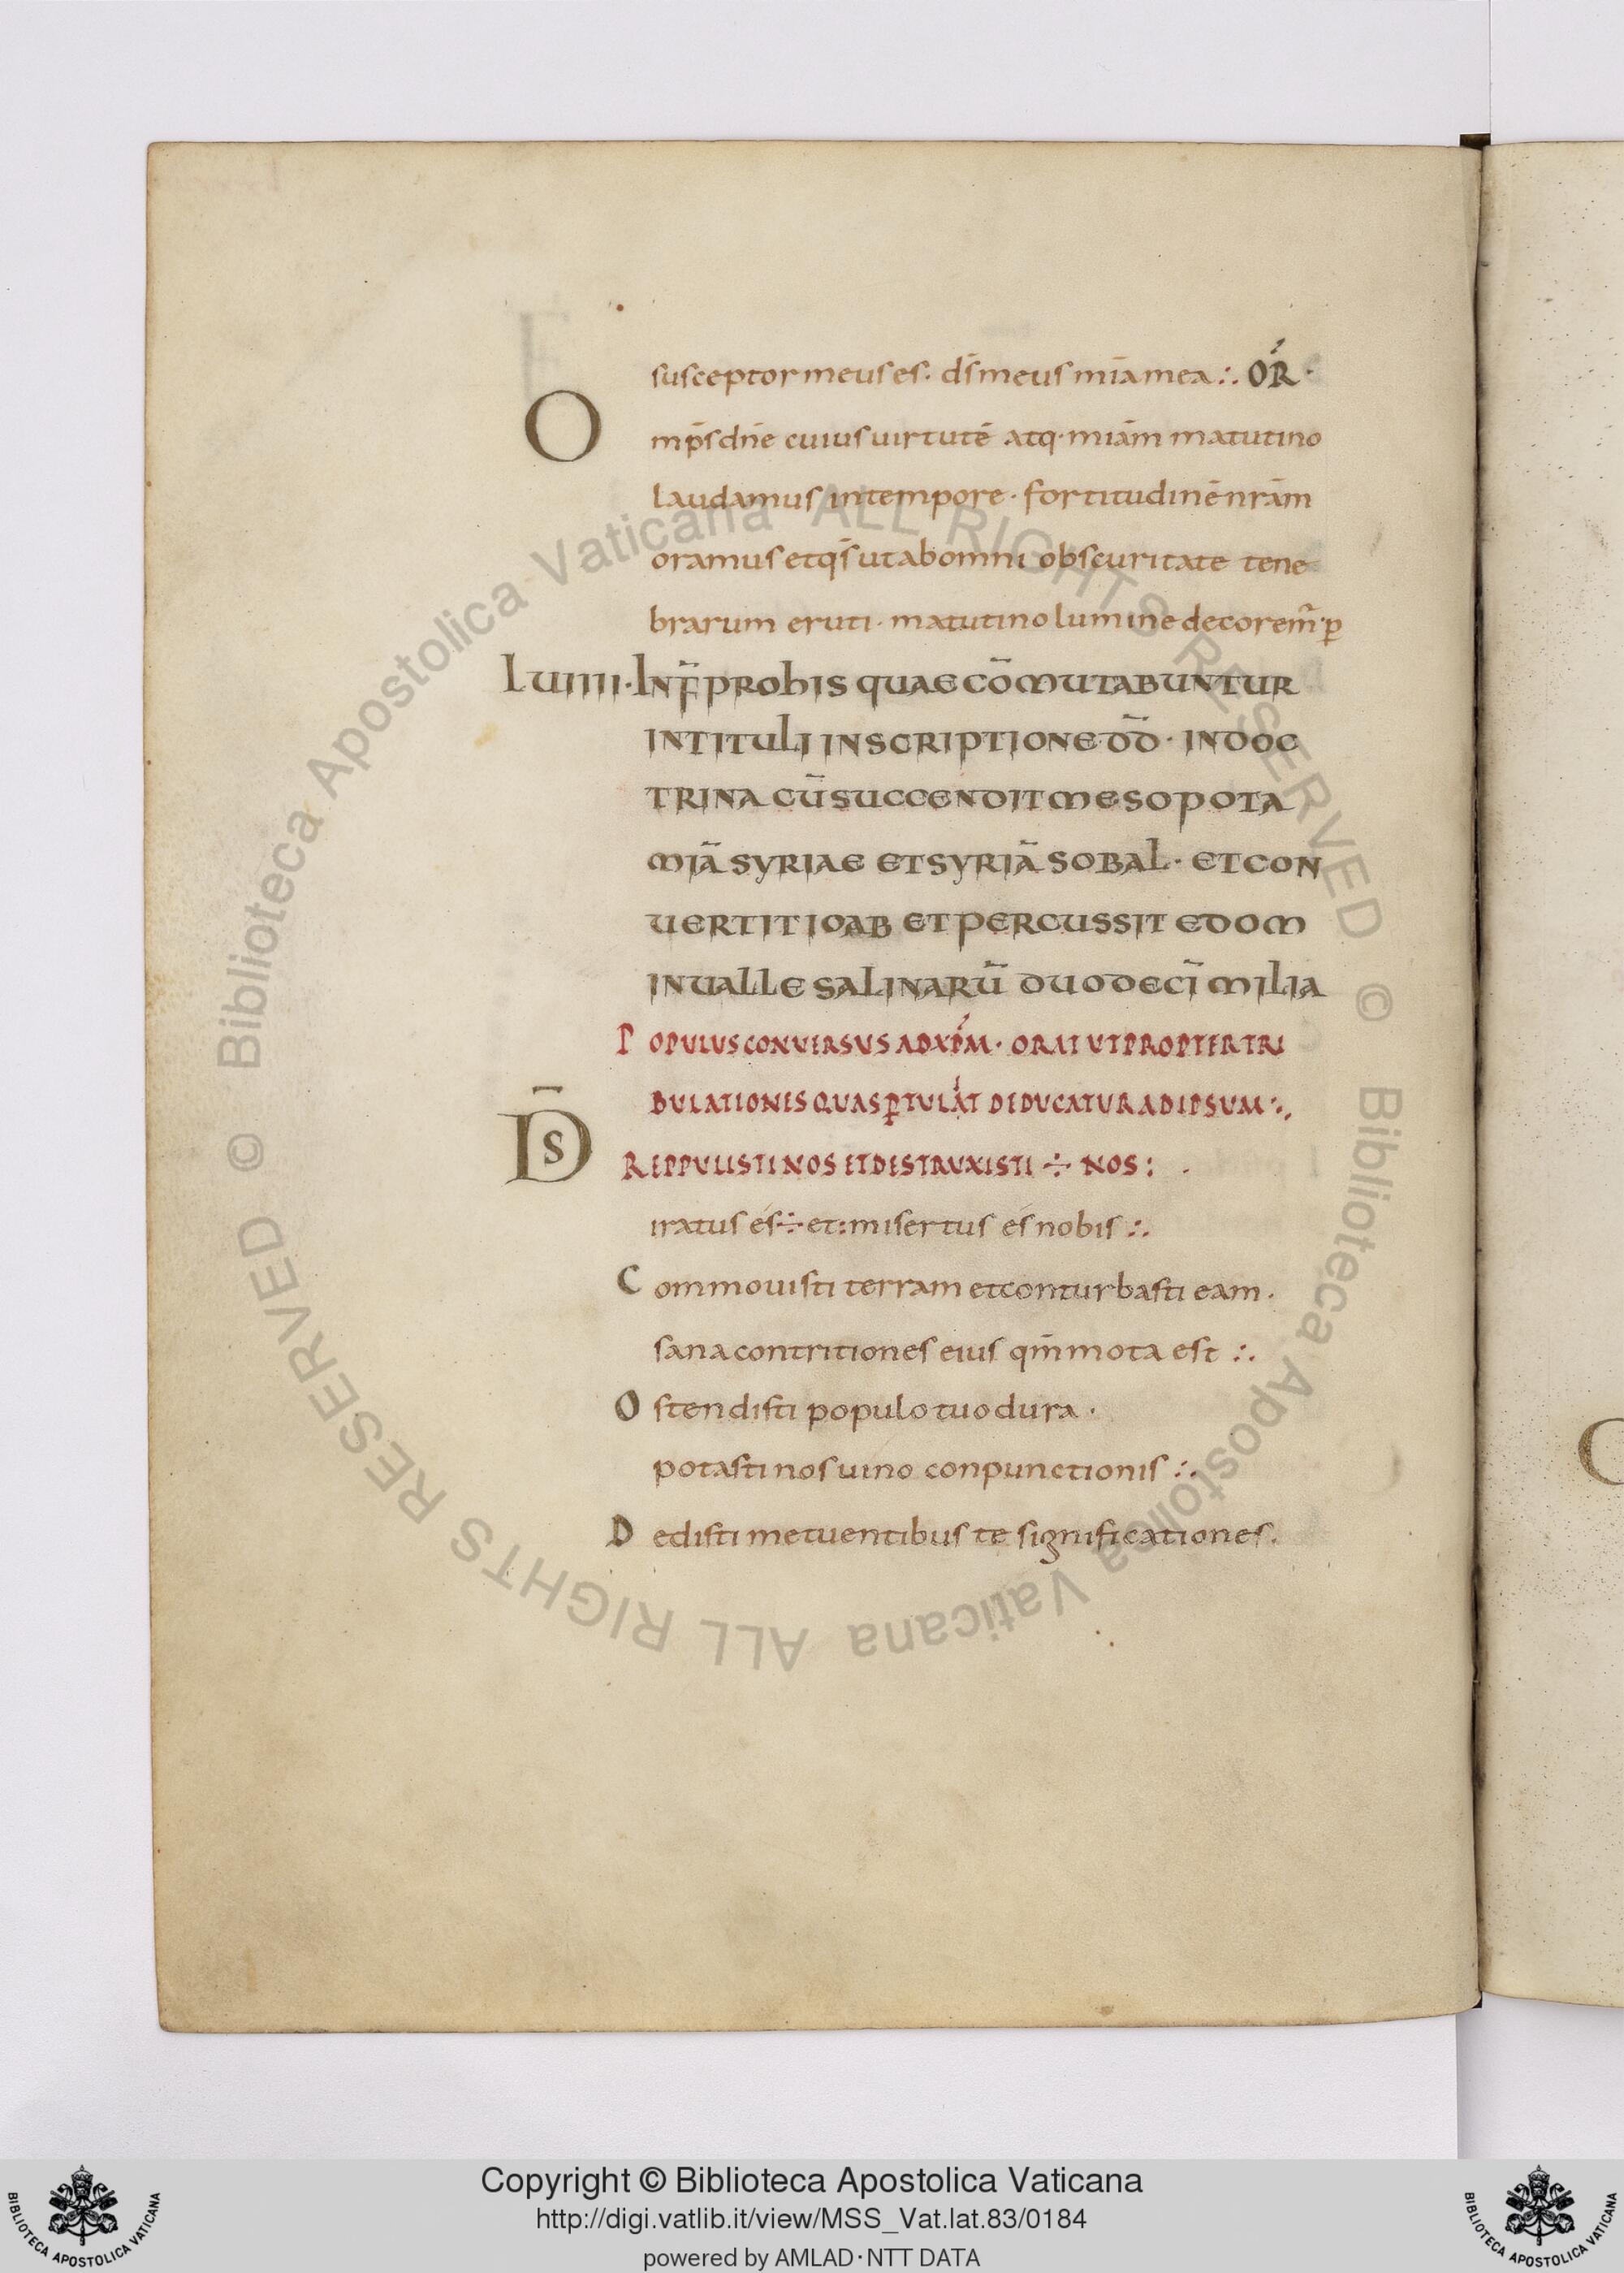 susceptor meus es. dś meus mia̅ mea :. OŔ.
Omp̅s dn̅e cuius uirtute̅ atq· mia̅m matutino
laudamus in tempore. fortitudine̅ nra̅m
oramus et qs̅ ut ab omni obscuritate tene
brarum eruti. matutino lumine decorem̅. p
LUIIII. IN F̅ PRO HIS QUAE CO̅MUTABUNTUR
IN TITULI INSCRIPTIONE D̅D. IN DOC
TRINA CU̅ SUCCENDIT MESOPOTA
MIA̅ SYRIAE ET SYRIA̅ SOBAL. ET CON
UERTIT IOAB ET PERCUSSIT EDOM
IN UALLE SALINARU̅ DUODECI̅ MILIA
POPULUS CONUERSUS AD XP̅M. ORAT UT PROPTER TRI
BULATIONES QUAS P̲TULAT DEDUCATUR AD IPSUM :.
D̅S REPPULISTI NOS ET DESTRUXISTI ÷ NOS :
iratus és ÷ et : misertus és nobis :.
Commouisti terram et conturbasti eam.
sana contritiones eius qm̅ mota est :.
Ostendisti populo tuo dura.
potasti nos uino conpunctionis :.
Dedisti metuentibus te significationes.
© Biblioteca Apostolica Vaticana ALL RIGHTS RESERVED
© Biblioteca Apostolica Vaticana ALL RIGHTS RESERVED
Copyright © Biblioteca Apostolica Vaticana
http://digi.vatlib.it/view/MSS_Vat.lat.83/0184
powered by AMLAD·NTT DATA
BIBLIOTECA APOSTOLICA VATICANA
BIBLIOTECA APOSTOLICA VATICANA